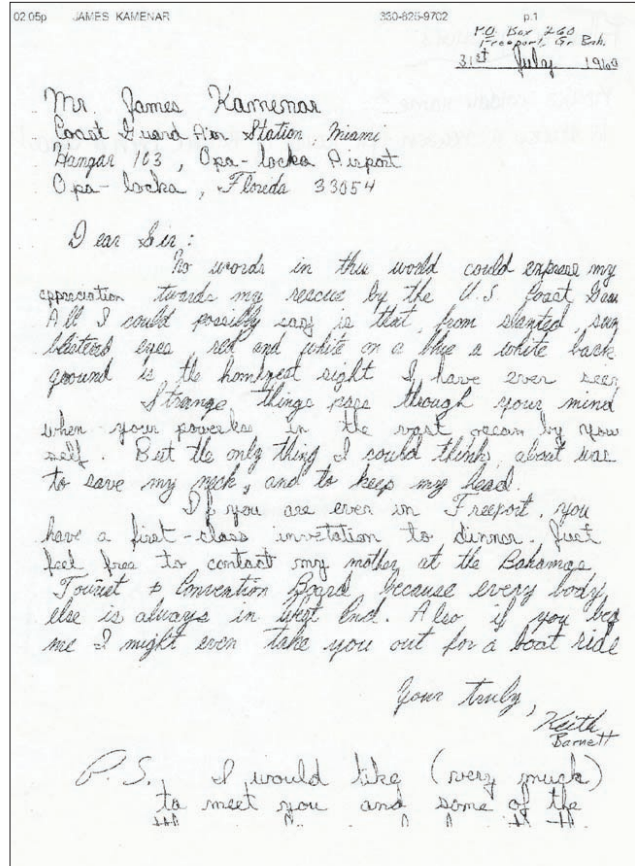 02:05p JAMES KAMENAR 330-825-9702 p.1
P.O. Box 260
Freeport, Gr. Bah.
31st July 1969
Mr James Kamenar
Coast Guard Air Station, Miami
Hangar 103, Opa-locka Airport
Opa-locka, Florida 33054
Dear Sir:
No words in this world could express my
appreciation towards my rescue by the U.S. Coast Gua
All I could possibly say is that, from slanted, sun
blistered eyes red and white on a blue a white back
ground is the hominest sight I have ever seen
Strange things pass through your mind
when your powerless in the vast ocean by your
self. But the only thing I could think about was
to save my neck, and to keep my head.
If you are ever in Freeport, you
have a first-class invetation to dinner. Just
feel free to contact my mother at the Bahamas
Tourist & Convention Board because every body
else is always in West End. Also if you beg
me I might even take you out for a boat ride
Your truly,
Keith
Barnett
P.S. I would like (very much)
to meet you and some of the